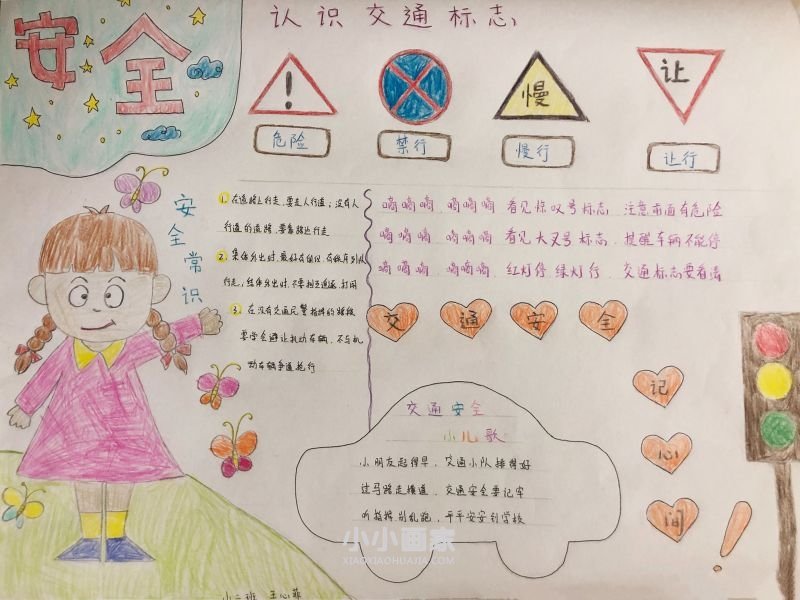 安全
认识交通标志
让
慢
危险
禁行
慢行
让行
安全常识
1. 在道路上行走,要走人行道;没有人
行道的道路,要靠路边行走
2. 集体外出时,最好有组织、有秩序列队
行走;结伴外出时,不要相互追逐、打闹
3. 在没有交通民警指挥的路段
要学会避让机动车辆,不与机
动车辆争道抢行
嘀嘀嘀,嘀嘀嘀 看见惊叹号标志 注意前面有危险
嘀嘀嘀 嘀嘀嘀 看见大叉号标志 提醒车辆不能停
嘀嘀嘀 嘀嘀嘀 红灯停,绿灯行 交通标志要看清
交通安全
记心间!
交通安全
小儿歌
小朋友起得早,交通小队排得好
过马路走横道,交通安全要记牢
听指挥别乱跑,平平安安到学校
小小画家
XIAOXIAOHUAJIA.COM
小二班 王心菲